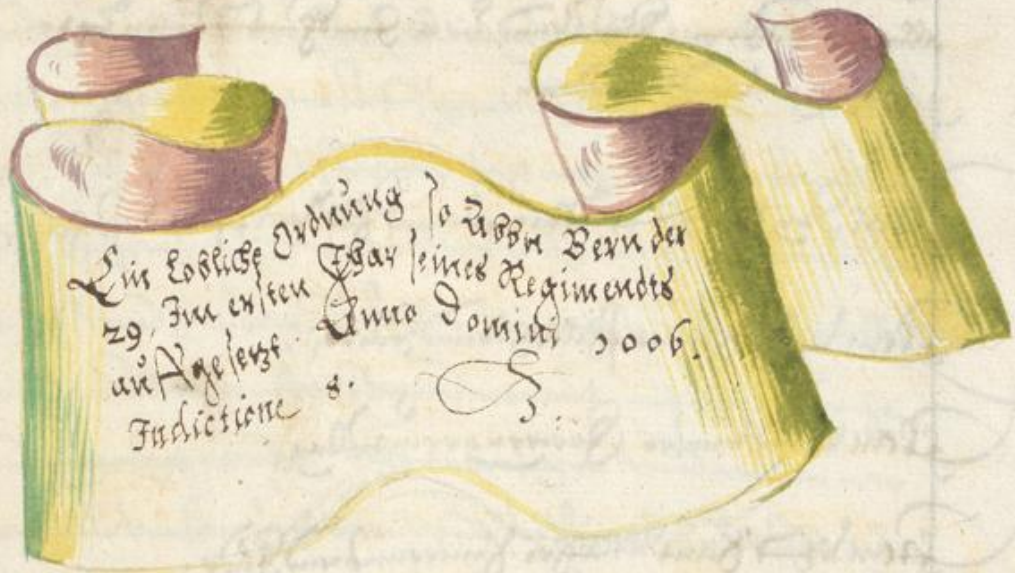 Ein Lobliche Ordnung so Abbt Bern der
29. Im ersten Jhar seines Regimendts
auffgesetzt. Anno Domini 1006.
Indictione 8.